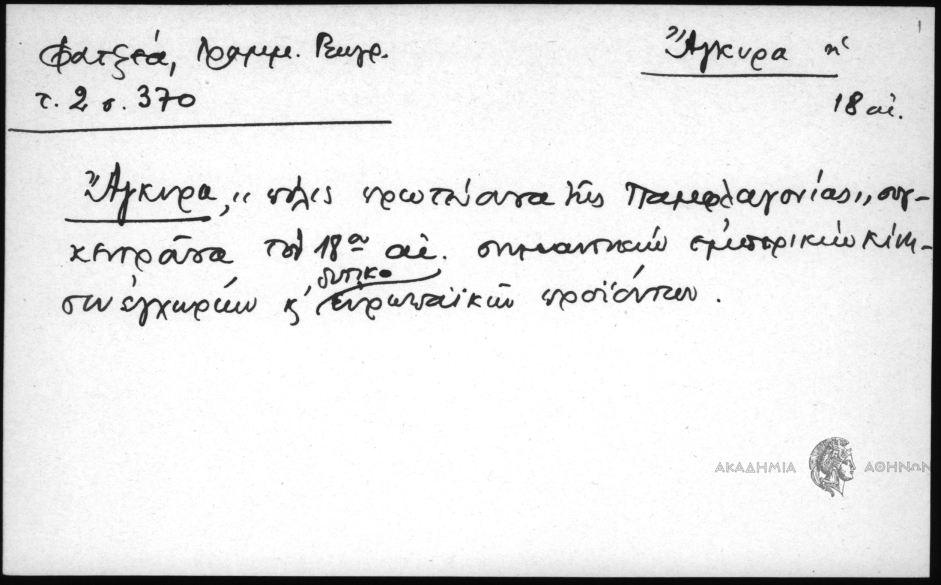 Φατζέα, Γραμμ. Γεωγρ.
τ. 2 σ. 370
Ἄγκυρα ἡ
18 αἰ.
Ἄγκυρα, „πόλις πρωτεύουσα τῆς Παμφλαγονίας„, συγ-
κεντρῶσα τὸν 18ον αἰ. σημαντικὴν ἐμπορικὴν κίνη-
σιν ἐγχωρίων κ' δυτικο
εὐρωπαϊκῶν προϊόντων.
ΑΚΑΔΗΜΙΑ ΑΘΗΝΩΝ